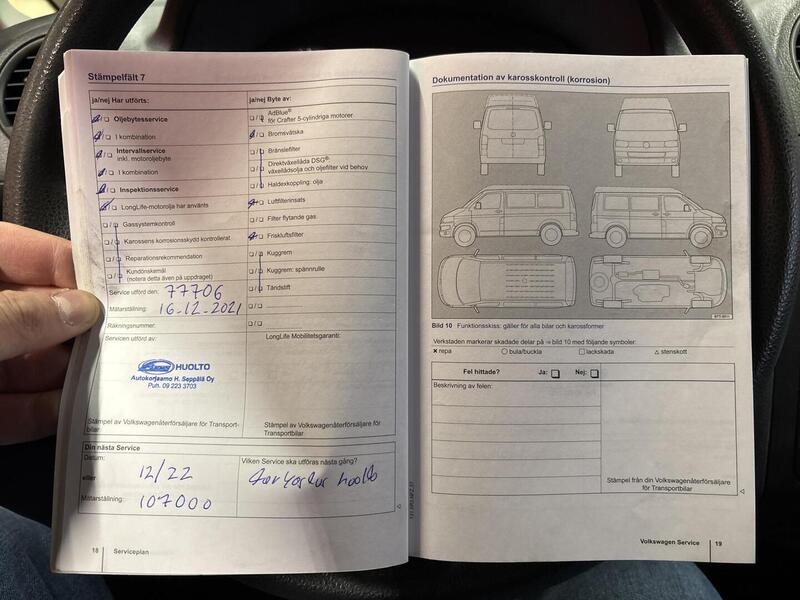 Stämpelfält 7
ja/nej Har utförts:
Oljebytesservice
1 kombination
Intervallservice
inkl. motoroljebyte
1 kombination
Inspektionsservice
LongLife-motorolja har använts
Gassystemkontroll
Karossens korrosionsskydd kontrollerat
Reparationsrekommendation
Kundönskemål
(notera detta även på uppdraget)
Service utförd den: 77706
Mätarställning: 16-12-2021
Räkningsnummer:
Servicen utförd av:
HUOLTO
Autokorjaamo H. Seppälä Oy
Puh. 09 223 3703
Stämpel av Volkswagenåterförsäljare för Transport-
bilar
ja/nej Byte av:
AdBlue®
för Crafter 5-cylindriga motorer
Bromsvätska
Bränslefilter
Direktväxellåda DSG®:
växellådsolja och oljefilter vid behov
Haldexkoppling: olja
Luftfilterinsats
Filter flytande gas
Friskluftsfilter
Kuggrem
Kuggrem: spännrulle
Tändstift
LongLife Mobilitetsgaranti:
Stämpel av Volkswagenåterförsäljare för
Transportbilar
Din nästa Service
Datum:
12/22
eller
Mätarställning: 107000
Vilken Service ska utföras nästa gång?
huolto
18 Serviceplan
Dokumentation av karosskontroll (korrosion)
Bild 10 Funktionsskiss: gäller för alla bilar och karossformer
Verkstaden markerar skadade delar på ⇒ bild 10 med följande symboler:
× repa ○ bula/buckla □ lackskada △ stenskott
Fel hittade? Ja: Nej:
Beskrivning av felen:
Stämpel från din Volkswagenåterförsäljare
för Transportbilar
Volkswagen Service 19